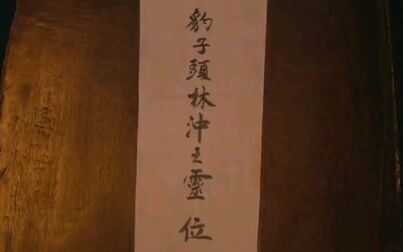 豹子頭林沖之靈位